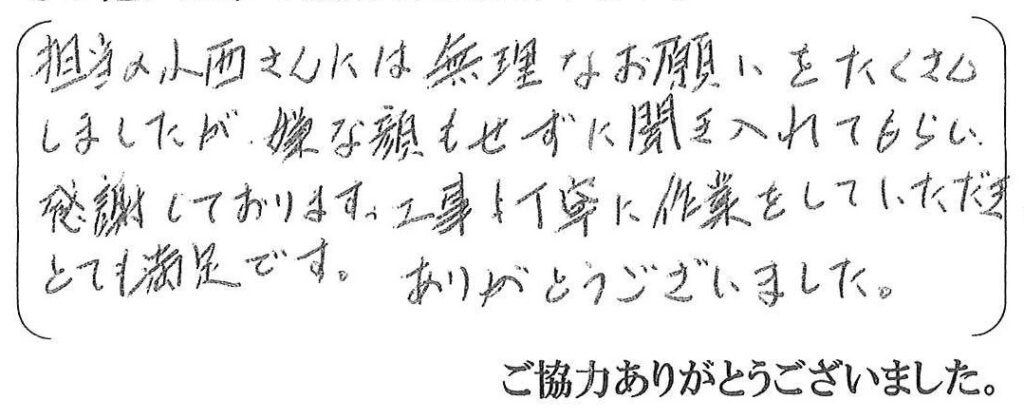 担当の小西さんには無理なお願いをたくさん
しましたが、嫌な顔もせずに聞き入れてもらい、
感謝しております。工事も丁寧に作業をしていただき
とても満足です。ありがとうございました。
ご協力ありがとうございました。